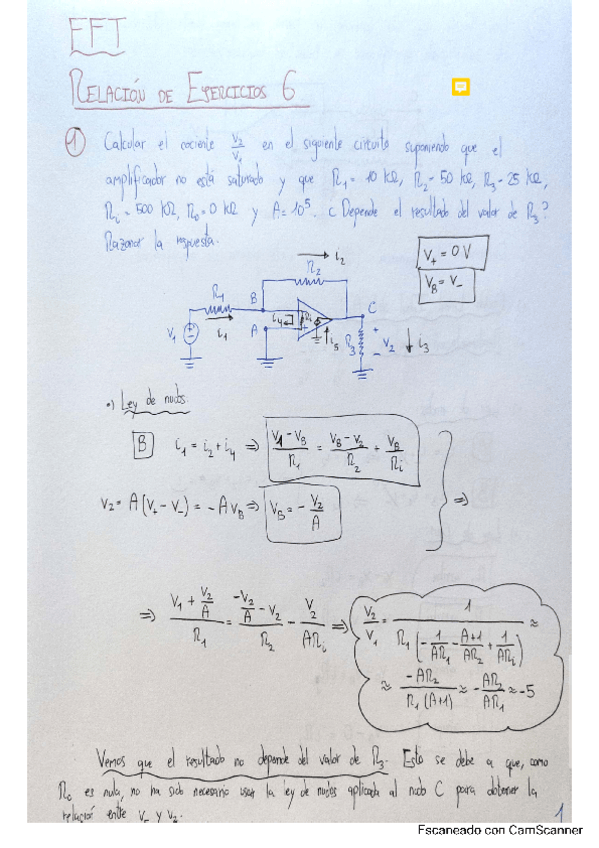 FFT
RELACIÓN DE EJERCICIOS 6
1 Calcular el cociente V2/V1 en el siguiente circuito suponiendo que el
amplificador no está saturado y que R1 = 10 kΩ, R2 = 50 kΩ, R3 = 25 kΩ,
Ri = 500 kΩ, R0 = 0 kΩ y A = 10^5. ¿Depende el resultado del valor de R3?
Razonar la respuesta.
V+ = 0 V
VB = V-
i2
R2
R1
B
C
i4
Ri
A
V1
i1
i5
R3
+
V2
-
i3
•) Ley de nudos
B i1 = i2 + i4 ⇒ (V1 - VB)/R1 = (VB - V2)/R2 + VB/Ri
V2 = A(V+ - V-) = -A VB ⇒ VB = -V2/A ⇒
⇒ (V1 + V2/A)/R1 = (-V2/A - V2)/R2 - V2/(ARi) ⇒ V2/V1 = 1/(R1(-1/(AR1) - (A+1)/(AR2) + 1/(ARi))) ≈
≈ -AR2/(R1(A+1)) ≈ -AR2/(AR1) ≈ -5
Vemos que el resultado no depende del valor de R3. Esto se debe a que, como
R0 es nula, no ha sido necesario usar la ley de nudos aplicada al nudo C para obtener la
relación entre V1 y V2.
1
Escaneado con CamScanner